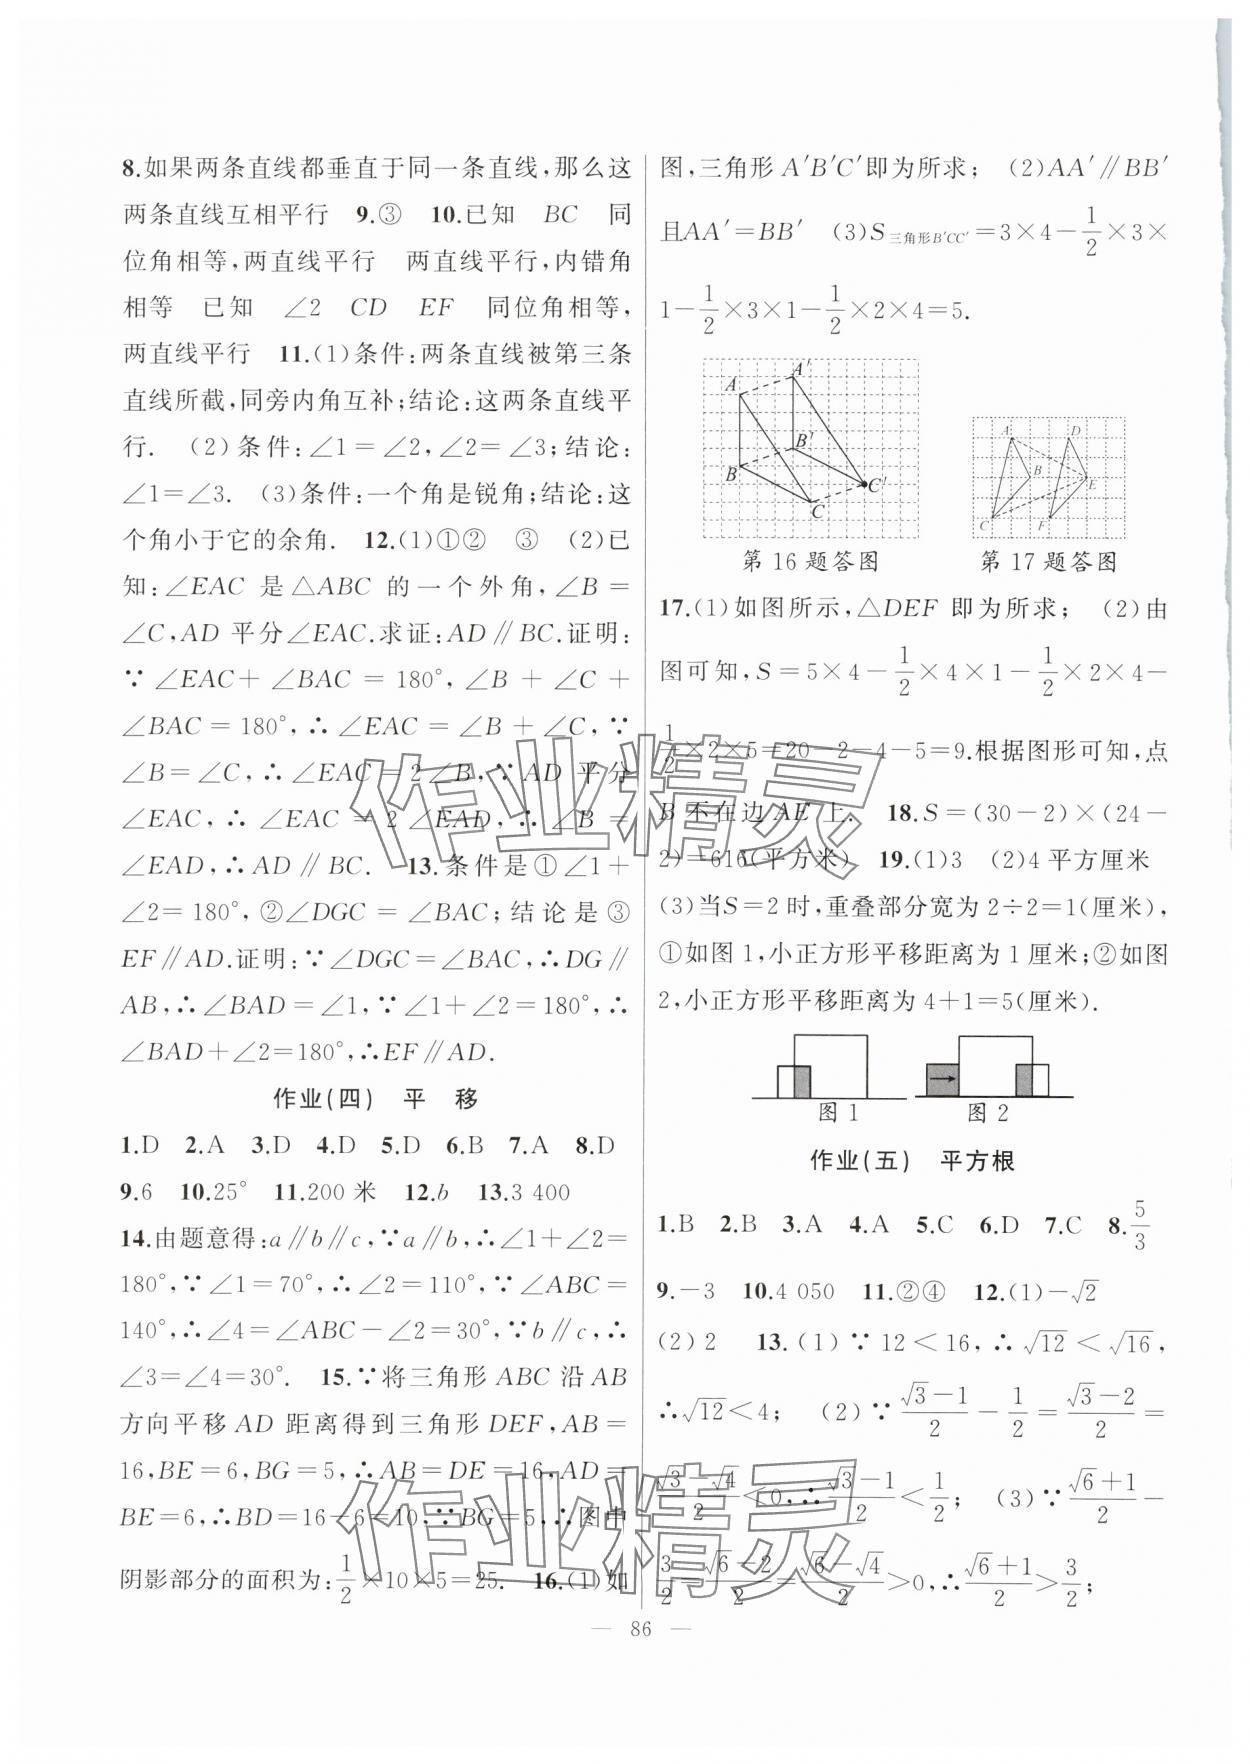 8.如果两条直线都垂直于同一条直线,那么这
两条直线互相平行　9.③　10.已知　BC　同
位角相等,两直线平行　两直线平行,内错角
相等　已知　∠2　CD　EF　同位角相等,
两直线平行　11.(1)条件:两条直线被第三条
直线所截,同旁内角互补;结论:这两条直线平
行.　(2)条件:∠1=∠2,∠2=∠3;结论:
∠1=∠3.　(3)条件:一个角是锐角;结论:这
个角小于它的余角.　12.(1)①②　③　(2)已
知:∠EAC 是△ABC 的一个外角,∠B=
∠C,AD 平分∠EAC.求证:AD∥BC.证明:
∵∠EAC+∠BAC=180°,∠B+∠C+
∠BAC=180°,∴∠EAC=∠B+∠C,∵
∠B=∠C,∴∠EAC=2∠B,∵AD 平分
∠EAC,∴∠EAC=2∠EAD,∴∠B=
∠EAD,∴AD∥BC.　13.条件是①∠1+
∠2=180°,②∠DGC=∠BAC;结论是③
EF∥AD.证明:∵∠DGC=∠BAC,∴DG∥
AB,∴∠BAD=∠1,∵∠1+∠2=180°,∴
∠BAD+∠2=180°,∴EF∥AD.
作业(四)　平　移
1.D　2.A　3.D　4.D　5.D　6.B　7.A　8.D
9.6　10.25°　11.200 米　12.b　13.3 400
14.由题意得:a∥b∥c,∵a∥b,∴∠1+∠2=
180°,∵∠1=70°,∴∠2=110°,∵∠ABC=
140°,∴∠4=∠ABC-∠2=30°,∵b∥c,∴
∠3=∠4=30°.　15.∵将三角形 ABC 沿 AB
方向平移 AD 距离得到三角形 DEF,AB=
16,BE=6,BG=5,∴AB=DE=16,AD=
BE=6,∴BD=16-6=10,∵BG=5,∴图中
阴影部分的面积为:1/2×10×5=25.　16.(1)如
图,三角形 A′B′C′即为所求;　(2)AA′∥BB′
且AA′=BB′　(3)S三角形B′CC′=3×4-1/2×3×
1-1/2×3×1-1/2×2×4=5.
A A′ B B′ C C′
A D B E C F
第 16 题答图　第 17 题答图
17.(1)如图所示,△DEF 即为所求;　(2)由
图可知,S=5×4-1/2×4×1-1/2×2×4-
1/2×2×5=20-2-4-5=9.根据图形可知,点
B 不在边 AE 上.　18.S=(30-2)×(24-
2)=616(平方米)　19.(1)3　(2)4 平方厘米
(3)当S=2 时,重叠部分宽为 2÷2=1(厘米),
①如图 1,小正方形平移距离为 1 厘米;②如图
2,小正方形平移距离为 4+1=5(厘米).
图 1　图 2
作业(五)　平方根
1.B　2.B　3.A　4.A　5.C　6.D　7.C　8.5/3
9.-3　10.4 050　11.②④　12.(1)-√2
(2)2　13.(1)∵12<16,∴√12<√16,
∴√12<4;　(2)∵(√3-1)/2-1/2=(√3-2)/2=
(√3-√4)/2<0,∴(√3-1)/2<1/2;　(3)∵(√6+1)/2-
3/2=(√6-2)/2=(√6-√4)/2>0,∴(√6+1)/2>3/2;
— 86 —
作业精灵
作业精灵